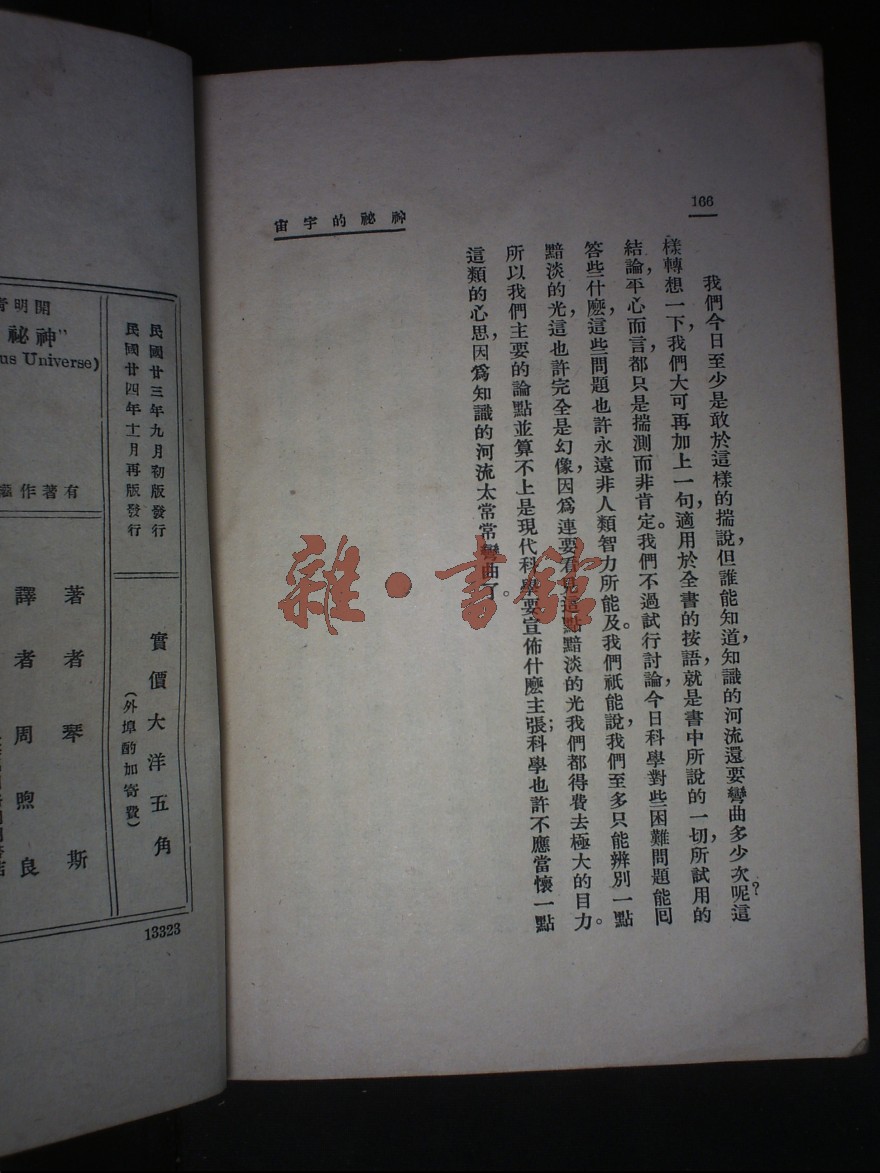 166
神祕的宇宙
我們今日至少是敢於這樣的揣說，但誰能知道，知識的河流還要彎曲多少次呢？這
樣轉想一下，我們大可再加上一句，適用於全書的按語，就是書中所說的一切，所試用的
結論，平心而言，都只是揣測而非肯定。我們不過試行討論，今日科學對些困難問題能囘
答些什麽，這些問題也許永遠非人類智力所能及。我們祇能說，我們至多只能辨別一點
黯淡的光，這也許完全是幻像，因爲連要看見這點黯淡的光我們都得費去極大的目力。
所以我們主要的論點並算不上是現代科學要宣佈什麽主張；科學也許不應當懷一點
這類的心思，因爲知識的河流太常常彎曲了。
雜·書館
開明青
"神祕
us Universe)
有著作權
民國廿三年九月初版發行
民國廿四年十月再版發行
實價大洋五角
(外埠酌加寄費)
著者 琴斯
譯者 周煦良
13323